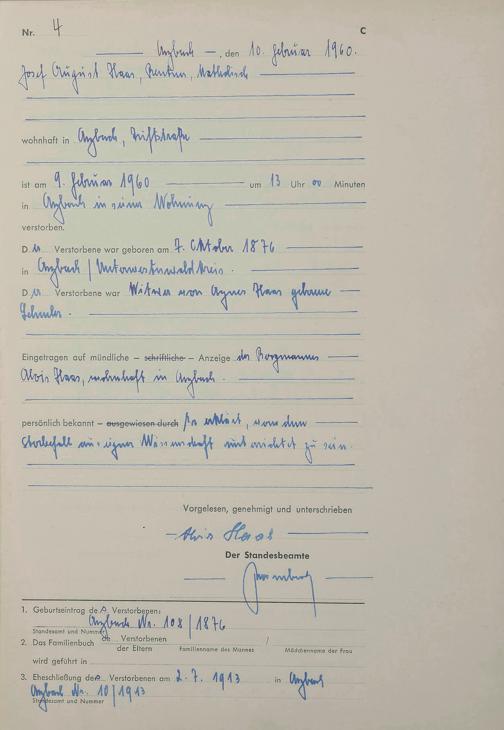 Nr. 4 C
Arzbach, den 10. Februar 1960.
Josef August Haas, Rentner, Katholisch
wohnhaft in Arzbach, Triftstraße
ist am 9. Februar 1960 um 13 Uhr 00 Minuten
in Arzbach in seiner Wohnung
verstorben.
Der Verstorbene war geboren am 7. Oktober 1876
in Arzbach / Unterwesterwaldkreis.
Der Verstorbene war Witwer von Agnes Haas geborene
Eingetragen auf mündliche – schriftliche – Anzeige des Bergmannes
Alois Haas, wohnhaft in Arzbach.
persönlich bekannt – ausgewiesen durch Er erklärt, von dem
Sterbefall aus eigner Wissenschaft unterrichtet zu sein.
Vorgelesen, genehmigt und unterschrieben
Alois Haas
Der Standesbeamte
1. Geburtseintrag des Verstorbenen:
Arzbach Nr. 108/1876
Standesamt und Nummer
2. Das Familienbuch des Verstorbenen /
der Eltern Familienname des Mannes Mädchenname der Frau
wird geführt in
3. Eheschließung des Verstorbenen am 2.7.1913 in Arzbach
Arzbach Nr. 10/1913
Standesamt und Nummer